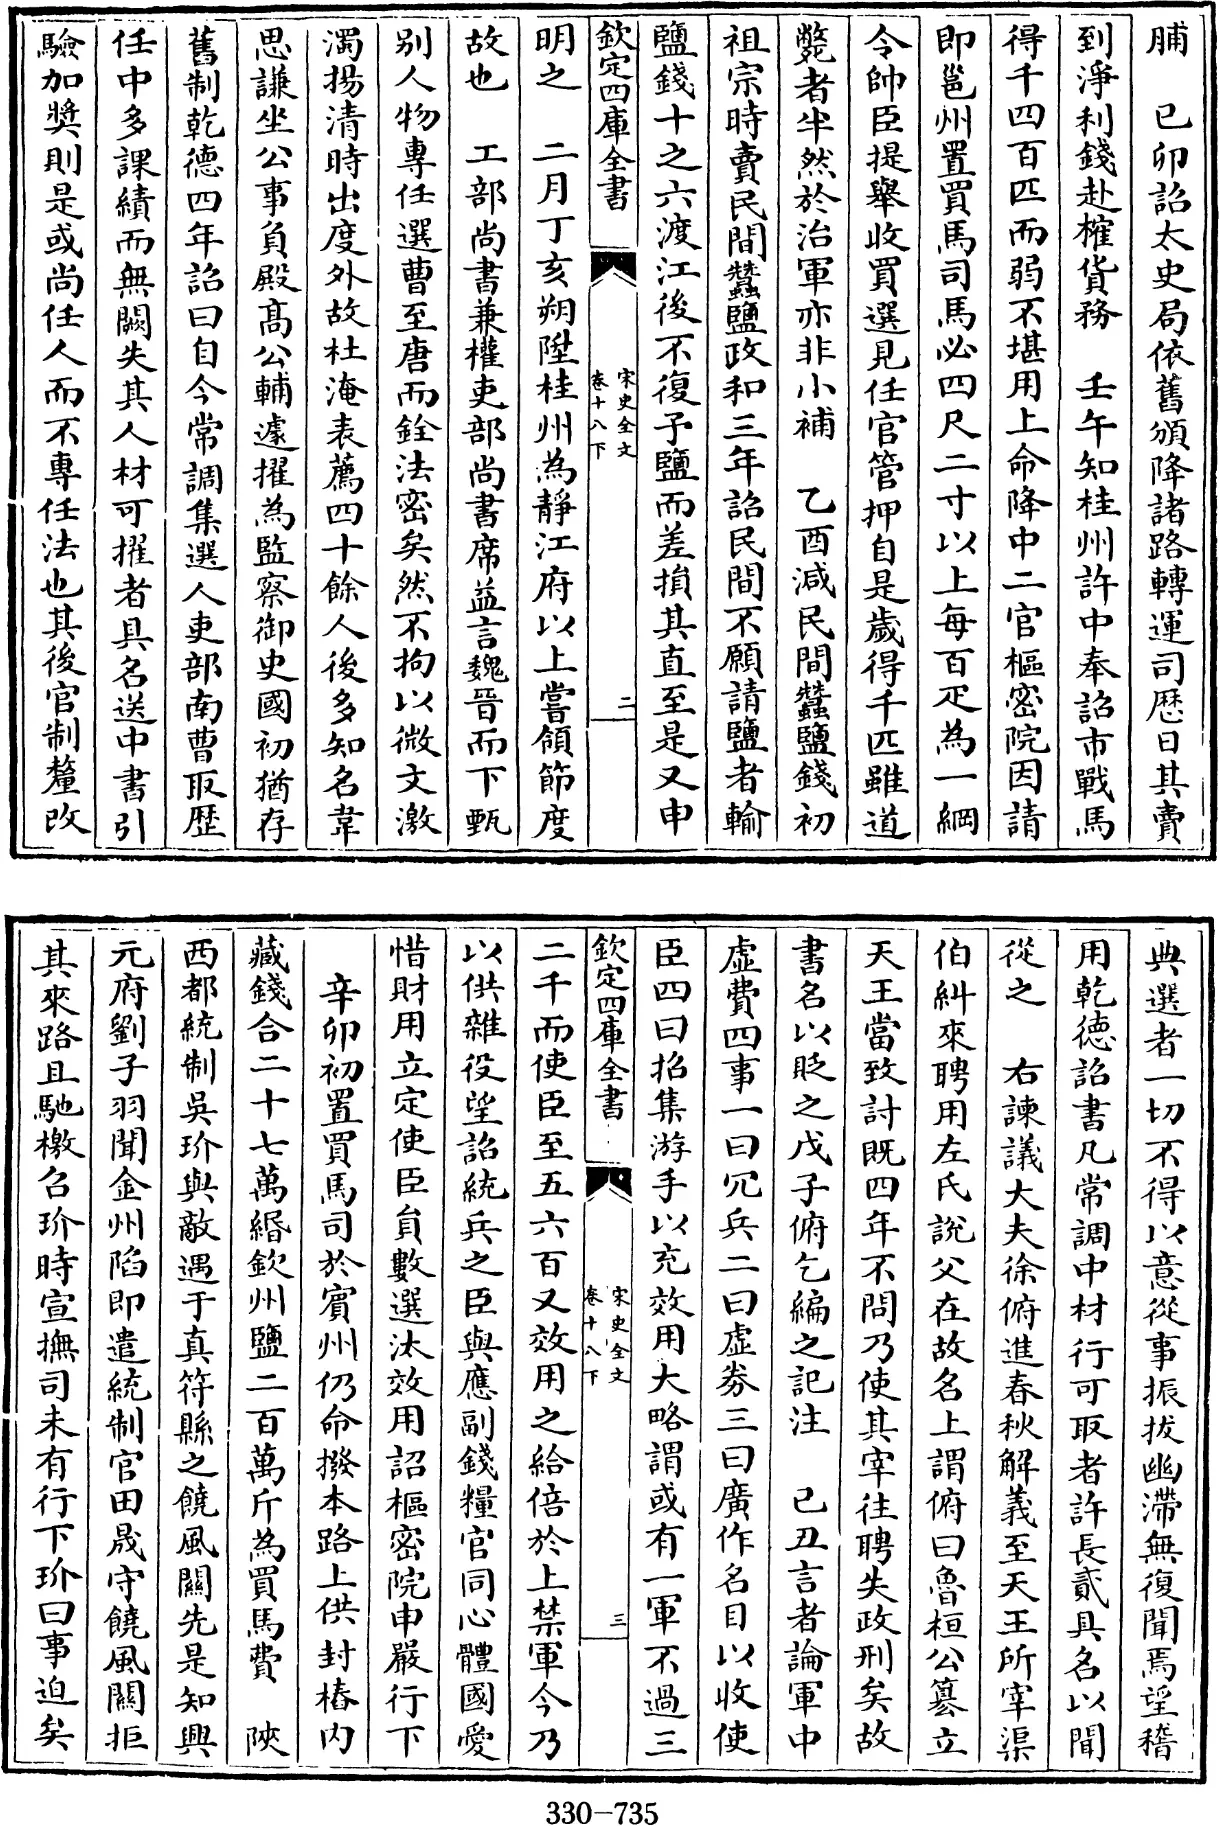 脯　已卯詔太史局依舊頒降諸路轉運司厯日其賣
到淨利錢赴榷貨務　壬午知桂州許中奉詔市戰馬
得千四百匹而弱不堪用上命降中二官樞密院因請
即邕州置買馬司馬必四尺二寸以上每百疋為一綱
令帥臣提舉收買選見任官管押自是歲得千匹雖道
斃者半然於治軍亦非小補　乙酉減民間蠶鹽錢初
祖宗時賣民間蠶鹽政和三年詔民間不願請鹽者輸
鹽錢十之六渡江後不復予鹽而差損其直至是又申
欽定四庫全書
宋史全文
卷十八下
二
明之　二月丁亥朔陞桂州為靜江府以上嘗領節度
故也　工部尚書兼權吏部尚書席益言魏晉而下甄
别人物專任選曹至唐而銓法密矣然不拘以微文激
濁揚清時出度外故杜淹表薦四十餘人後多知名韋
思謙坐公事負殿高公輔遽擢為監察御史國初猶存
舊制乾德四年詔曰自今常調集選人吏部南曹取歴
任中多課績而無闕失其人材可擢者具名送中書引
驗加奬則是或尚任人而不專任法也其後官制釐改
典選者一切不得以意從事振拔幽滯無復聞焉望稽
用乾徳詔書凡常調中材行可取者許長貳具名以聞
從之　右諫議大夫徐俯進春秋解義至天王所宰渠
伯糾來聘用左氏說父在故名上謂俯曰魯桓公篡立
天王當致討既四年不問乃使其宰往聘失政刑矣故
書名以貶之戊子俯乞編之記注　己丑言者論軍中
虛費四事一曰冗兵二曰虛劵三曰廣作名目以收使
臣四曰招集游手以充效用大略謂或有一軍不過三
欽定四庫全書
宋史全文
卷十八下
三
二千而使臣至五六百又效用之給倍於上禁軍今乃
以供雜役望詔統兵之臣與應副錢糧官同心體國愛
惜財用立定使臣員數選汰效用詔樞密院申嚴行下
辛卯初置買馬司於賓州仍命撥本路上供封樁内
藏錢合二十七萬緡欽州鹽二百萬斤為買馬費　陜
西都統制吳玠與敵遇于真符縣之饒風關先是知興
元府劉子羽聞金州陷即遣統制官田晟守饒風關拒
其來路且馳檄召玠時宣撫司未有行下玠曰事迫矣
330-735